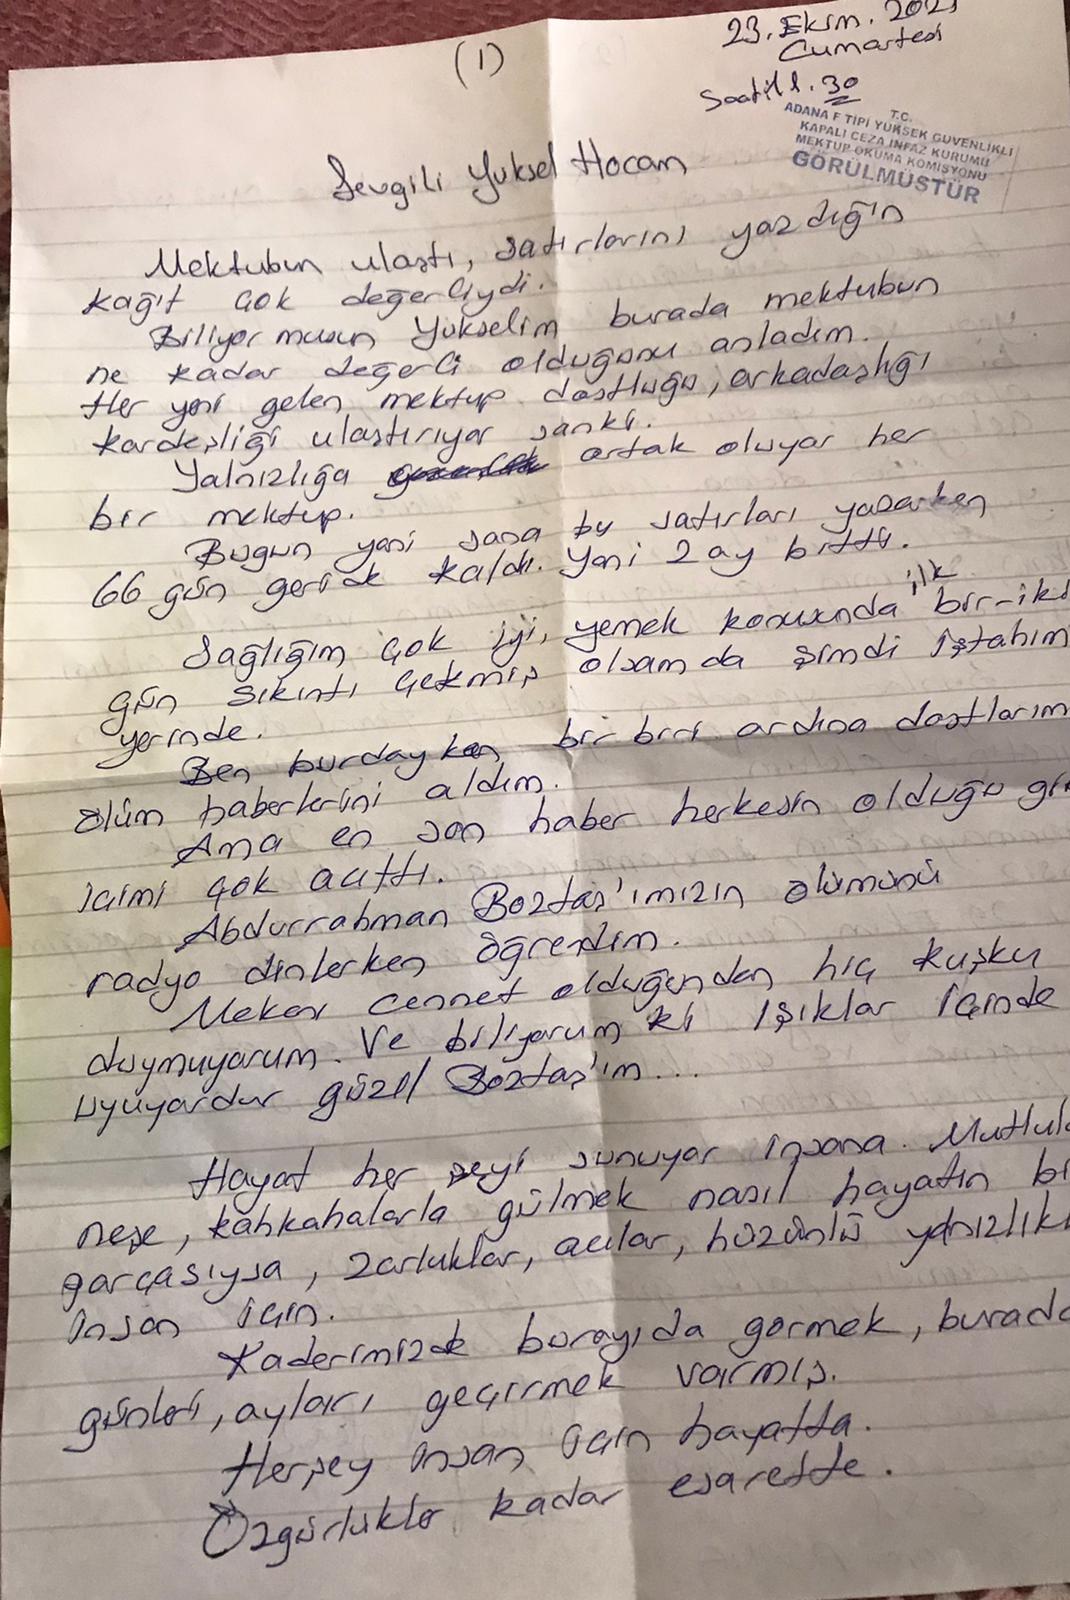 (1)
23. Ekim. 2021
Cumartesi
Saat 11.30
T.C.
ADANA F TİPİ YÜKSEK GÜVENLİKLİ
KAPALI CEZA İNFAZ KURUMU
MEKTUP OKUMA KOMİSYONU
GÖRÜLMÜŞTÜR
Sevgili Yüksel Hocam
Mektubun ulaştı, satırlarını yazdığın
kağıt çok değerliydi.
Biliyor musun Yükselim burada mektubun
ne kadar değerli olduğunu anladım.
Her yeni gelen mektup dostluğu, arkadaşlığı
kardeşliği ulaştırıyor sanki.
Yalnızlığa ortak oluyor her
bir mektup.
Bugün yani sana bu satırları yazarken
66 gün geride kaldı. Yani 2 ay bitti.
Sağlığım çok iyi, yemek konusunda ilk bir-iki
gün sıkıntı çekmiş olsam da şimdi iştahım
yerinde.
Ben burdayken bir biri ardına dostlarım
ölüm haberlerini aldım.
Ama en son haber herkesin olduğu gi
içimi çok acıttı.
Abdurrahman Boztaş'ımızın ölümünü
radyo dinlerken öğrendim.
Mekanı cennet olduğundan hiç kuşku
duymuyorum. Ve biliyorum ki ışıklar içinde
uyuyordur güzel Boztaş'ım...
Hayat her şeyi sunuyor insana. Mutlulu
neşe, kahkahalarla gülmek nasıl hayatın bi
parçasıysa, zorluklar, acılar, hüzünlü yalnızlıkl
insan için.
Kaderimizde burayıda görmek, burada
günleri, ayları geçirmek varmış.
Herşey insan için hayatta.
Özgürlükte kadar esarette.